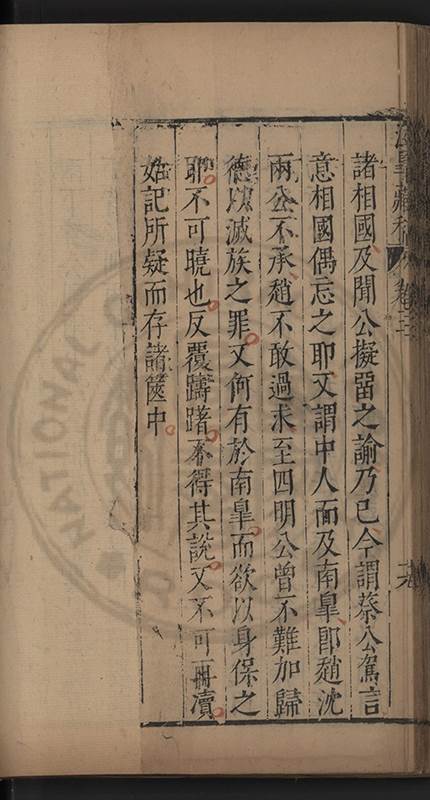 諸相國及聞公擬畱之諭乃已今謂蔡公駕言
意相國偶忘之耶又謂中人面及南臯郎趙沈
兩公不承趙不敢過未至四明公曾不難加歸
德以滅族之罪又何有於南臯而欲以身保之
耶不可曉也反覆躊躇不得其說又不可再瀆
姑記所疑而存諸篋中
藏稿 卷三